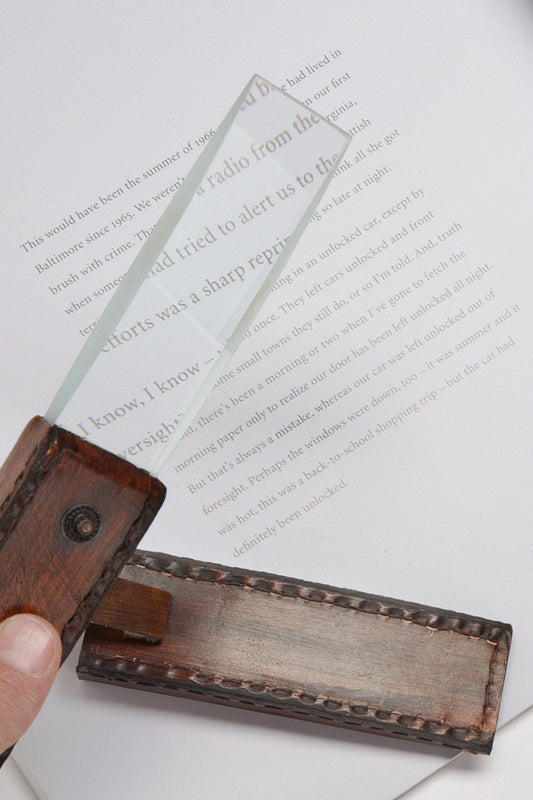 This would have been the summer of 1966 had lived in
Baltimore since 1965. We weren't our first
brush with crime. a radio from the
when had tried to alert us to the
efforts was a sharp all she got
so late at night.
I know, I know – in an unlocked car, except by
once. They left cars unlocked and front
small towns they still do, or so I'm told. And, truth
there's been a morning or two when I've gone to fetch the
morning paper only to realize our door has been left unlocked all night.
But that's always a mistake, whereas our car was left unlocked out of
foresight. Perhaps the windows were down, too – it was summer and it
was hot, this was a back-to-school shopping trip – but the car had
definitely been unlocked.